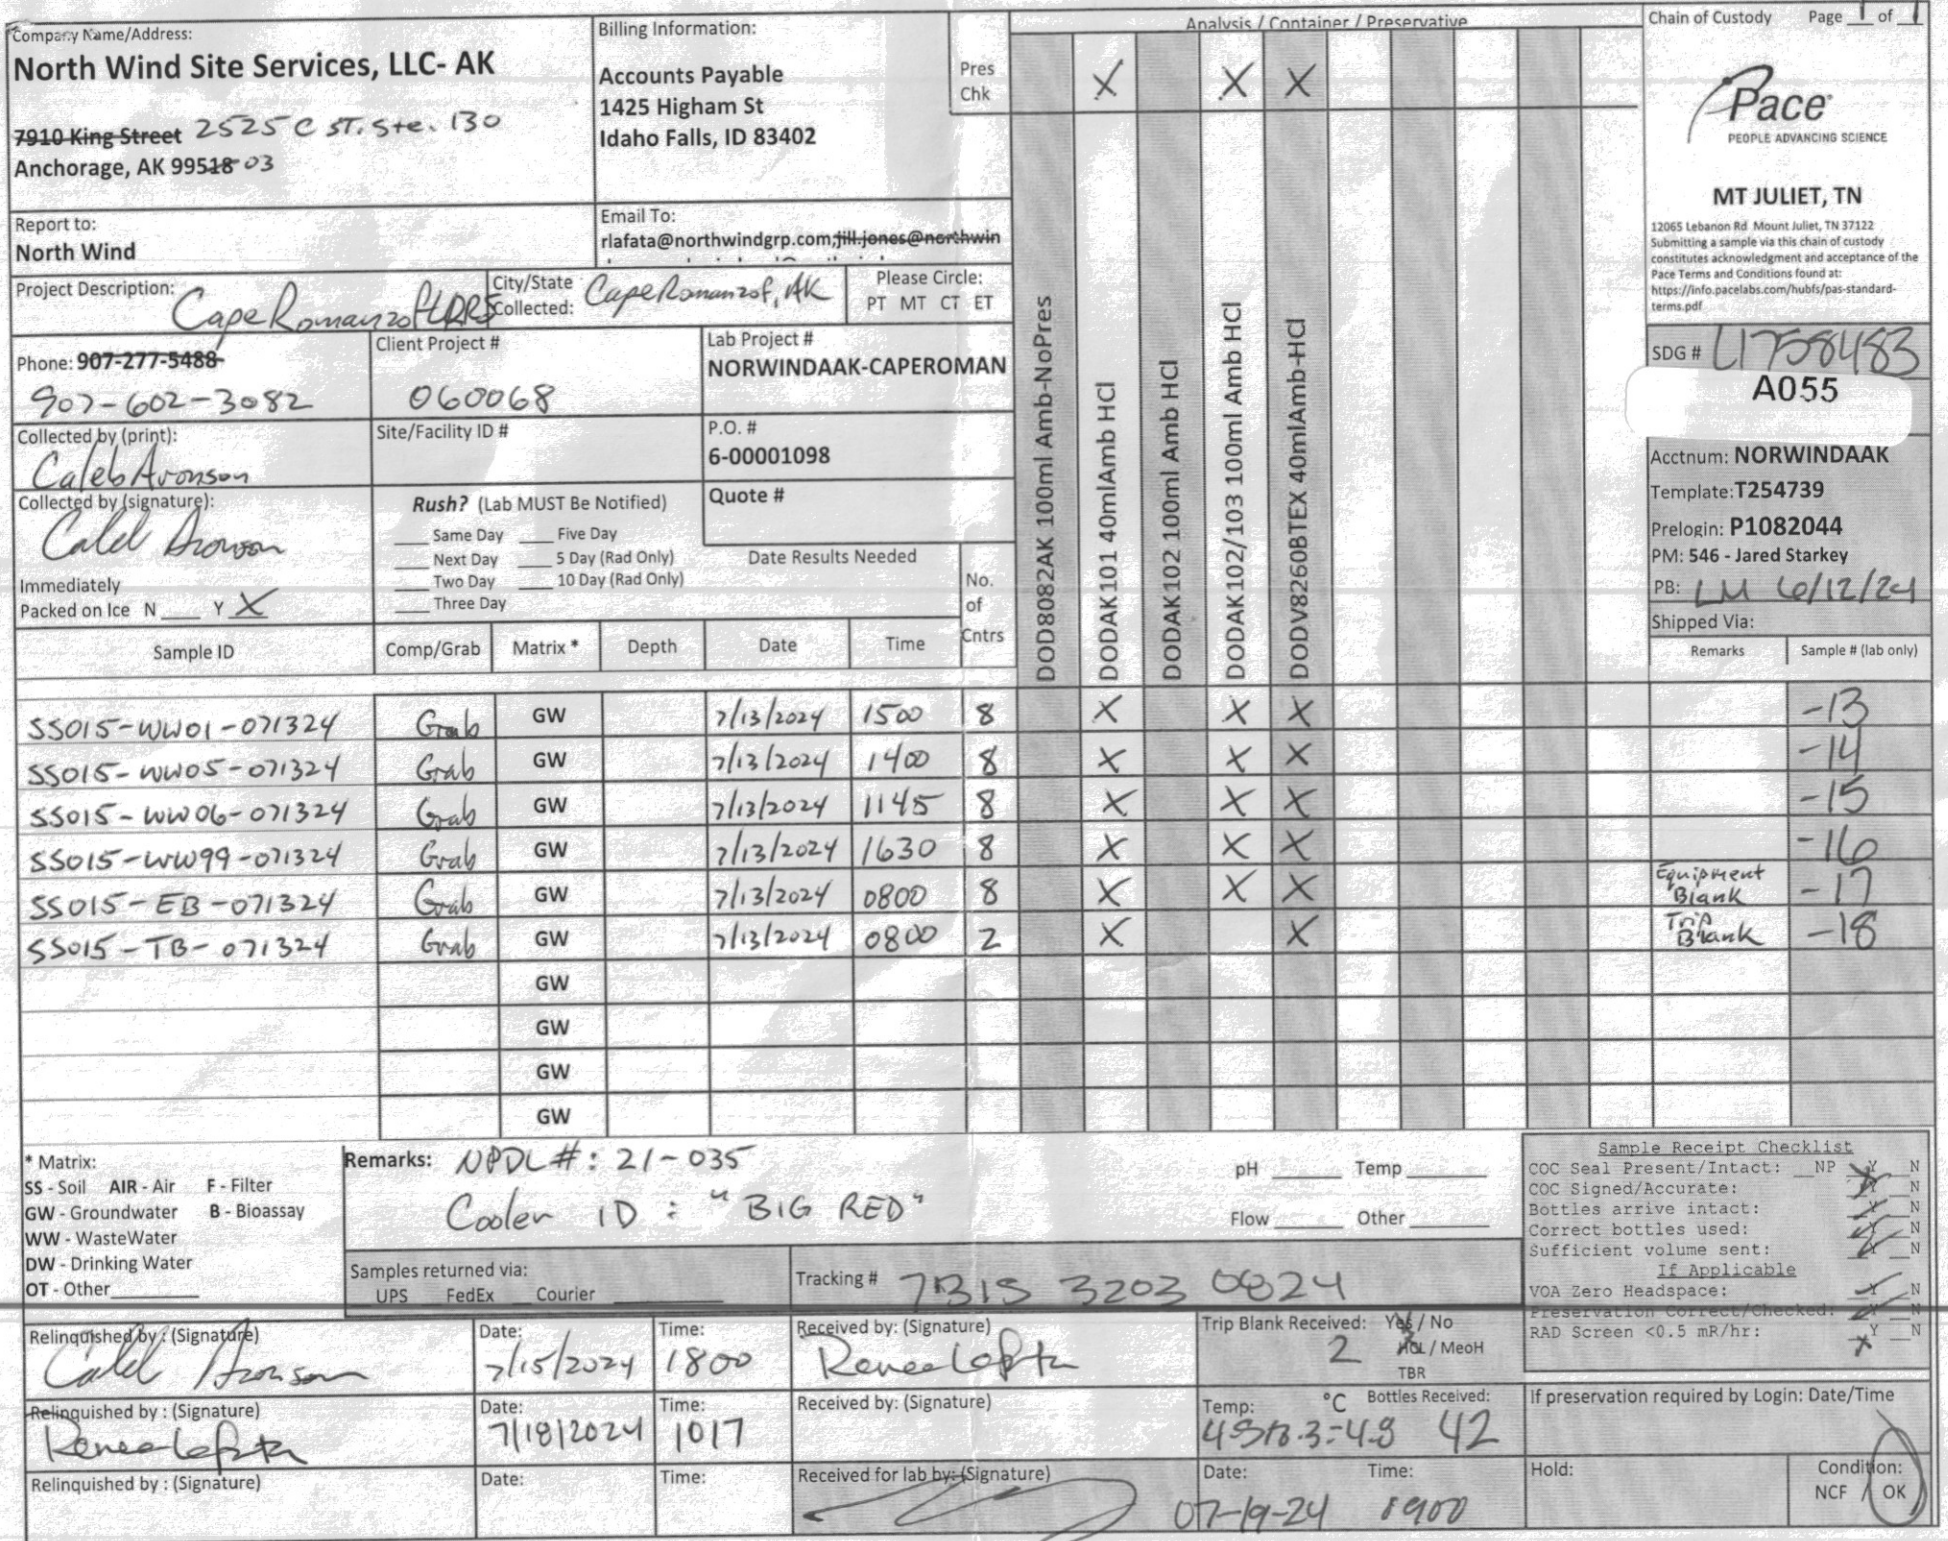 Company Name/Address:
North Wind Site Services, LLC- AK
7910 King Street 2525 C ST. Ste. 130
Anchorage, AK 99518 03
Billing Information:
Accounts Payable
1425 Higham St
Idaho Falls, ID 83402
Pres
Chk
X X X
Analysis / Container / Preservative
Chain of Custody Page 1 of 1
Pace
PEOPLE ADVANCING SCIENCE
MT JULIET, TN
12065 Lebanon Rd Mount Juliet, TN 37122
Submitting a sample via this chain of custody
constitutes acknowledgment and acceptance of the
Pace Terms and Conditions found at:
https://info.pacelabs.com/hubfs/pas-standard-
terms.pdf
Report to:
North Wind
Email To:
rlafata@northwindgrp.com;jill.jones@northwin
Project Description: Cape Romanzof LRRS
City/State
Collected: Cape Romanzof, AK
Please Circle:
PT MT CT ET
Phone: 907-277-5488
907-602-3082
Client Project #
060068
Lab Project #
NORWINDAAK-CAPEROMAN
Collected by (print):
Caleb Aronson
Site/Facility ID #
P.O. #
6-00001098
Collected by (signature):
Caleb Aronson
Rush? (Lab MUST Be Notified)
Same Day Five Day
Next Day 5 Day (Rad Only)
Two Day 10 Day (Rad Only)
Three Day
Quote #
Date Results Needed
Immediately
Packed on Ice N Y X
No.
of
Cntrs
DOD8082AK 100ml Amb-NoPres
DODAK101 40mlAmb HCl
DODAK102 100ml Amb HCl
DODAK102/103 100ml Amb HCl
DODV8260BTEX 40mlAmb-HCl
SDG # L1758483
A055
Acctnum: NORWINDAAK
Template: T254739
Prelogin: P1082044
PM: 546 - Jared Starkey
PB: LM 6/12/24
Shipped Via:
Remarks Sample # (lab only)
Sample ID Comp/Grab Matrix * Depth Date Time
SS015-WW01-071324 Grab GW 7/13/2024 1500 8 X X X -13
SS015-WW05-071324 Grab GW 7/13/2024 1400 8 X X X -14
SS015-WW06-071324 Grab GW 7/13/2024 1145 8 X X X -15
SS015-WW99-071324 Grab GW 7/13/2024 1630 8 X X X -16
SS015-EB-071324 Grab GW 7/13/2024 0800 8 X X X Equipment Blank -17
SS015-TB-071324 Grab GW 7/13/2024 0800 2 X X Trip Blank -18
GW
GW
GW
GW
* Matrix:
SS - Soil AIR - Air F - Filter
GW - Groundwater B - Bioassay
WW - WasteWater
DW - Drinking Water
OT - Other
Remarks: NPDL#: 21-035
Cooler ID: "BIG RED"
pH Temp
Flow Other
Samples returned via:
UPS FedEx Courier
Tracking # 7315 3203 0824
Sample Receipt Checklist
COC Seal Present/Intact: NP Y N
COC Signed/Accurate: Y N
Bottles arrive intact: Y N
Correct bottles used: Y N
Sufficient volume sent: Y N
If Applicable
VOA Zero Headspace: Y N
Preservation Correct/Checked: Y N
RAD Screen <0.5 mR/hr: Y N
Relinquished by : (Signature)
Caleb Aronson
Date:
7/15/2024
Time:
1800
Received by: (Signature)
Trip Blank Received: Yes / No
2 HCL / MeoH
TBR
Relinquished by : (Signature)
Date:
7/18/2024
Time:
1017
Received by: (Signature)
Temp: °C Bottles Received:
42
If preservation required by Login: Date/Time
Relinquished by : (Signature)
Date:
Time:
Received for lab by: (Signature)
Date: Time:
07-19-24 0900
Hold:
Condition:
NCF / OK